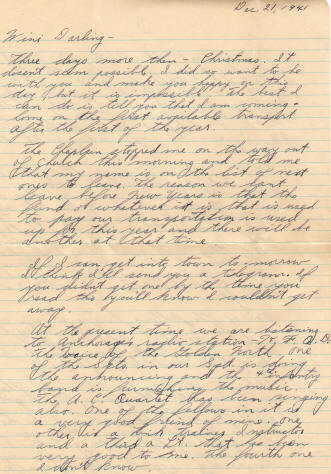 Dec 21, 1941
Mimi Darling -
Three days more then - Christmas. It
dosent seem possible, I did so want to be
with you and make you happy on this
day but it is impossible. The best I
can do is tell you that I am coming
home on the first available transport
after the first of the year.
The Chaplain stopped me on the way out
of church this morning and told me
that my name is on the list of next
ones to leave. The reason we cant
leave before New Years is that the
fund or whatever it is that is used
to pay our transportation is used
up for this year and there will be
another at that time
If I can get into town to-morrow
I think I'll send you a telegram. If
you didnt get one by the time you
read this you'll know I couldnt get
away.
At the present time we are listening
to Anchorage's radio station - K. F. Q. D.
the voice of the Golden North. One
of the Sgts. in our Sqd. is doing
the announcing and the 4th Infantry
band is furnishing the music.
The A. C. Quartet has been singing
also. One of the fellows in it is
a very good friend of mine. one
other is a Link Trainer Instructor
and a third a Lt. that has been
very good to me. The fourth one
I dont know.